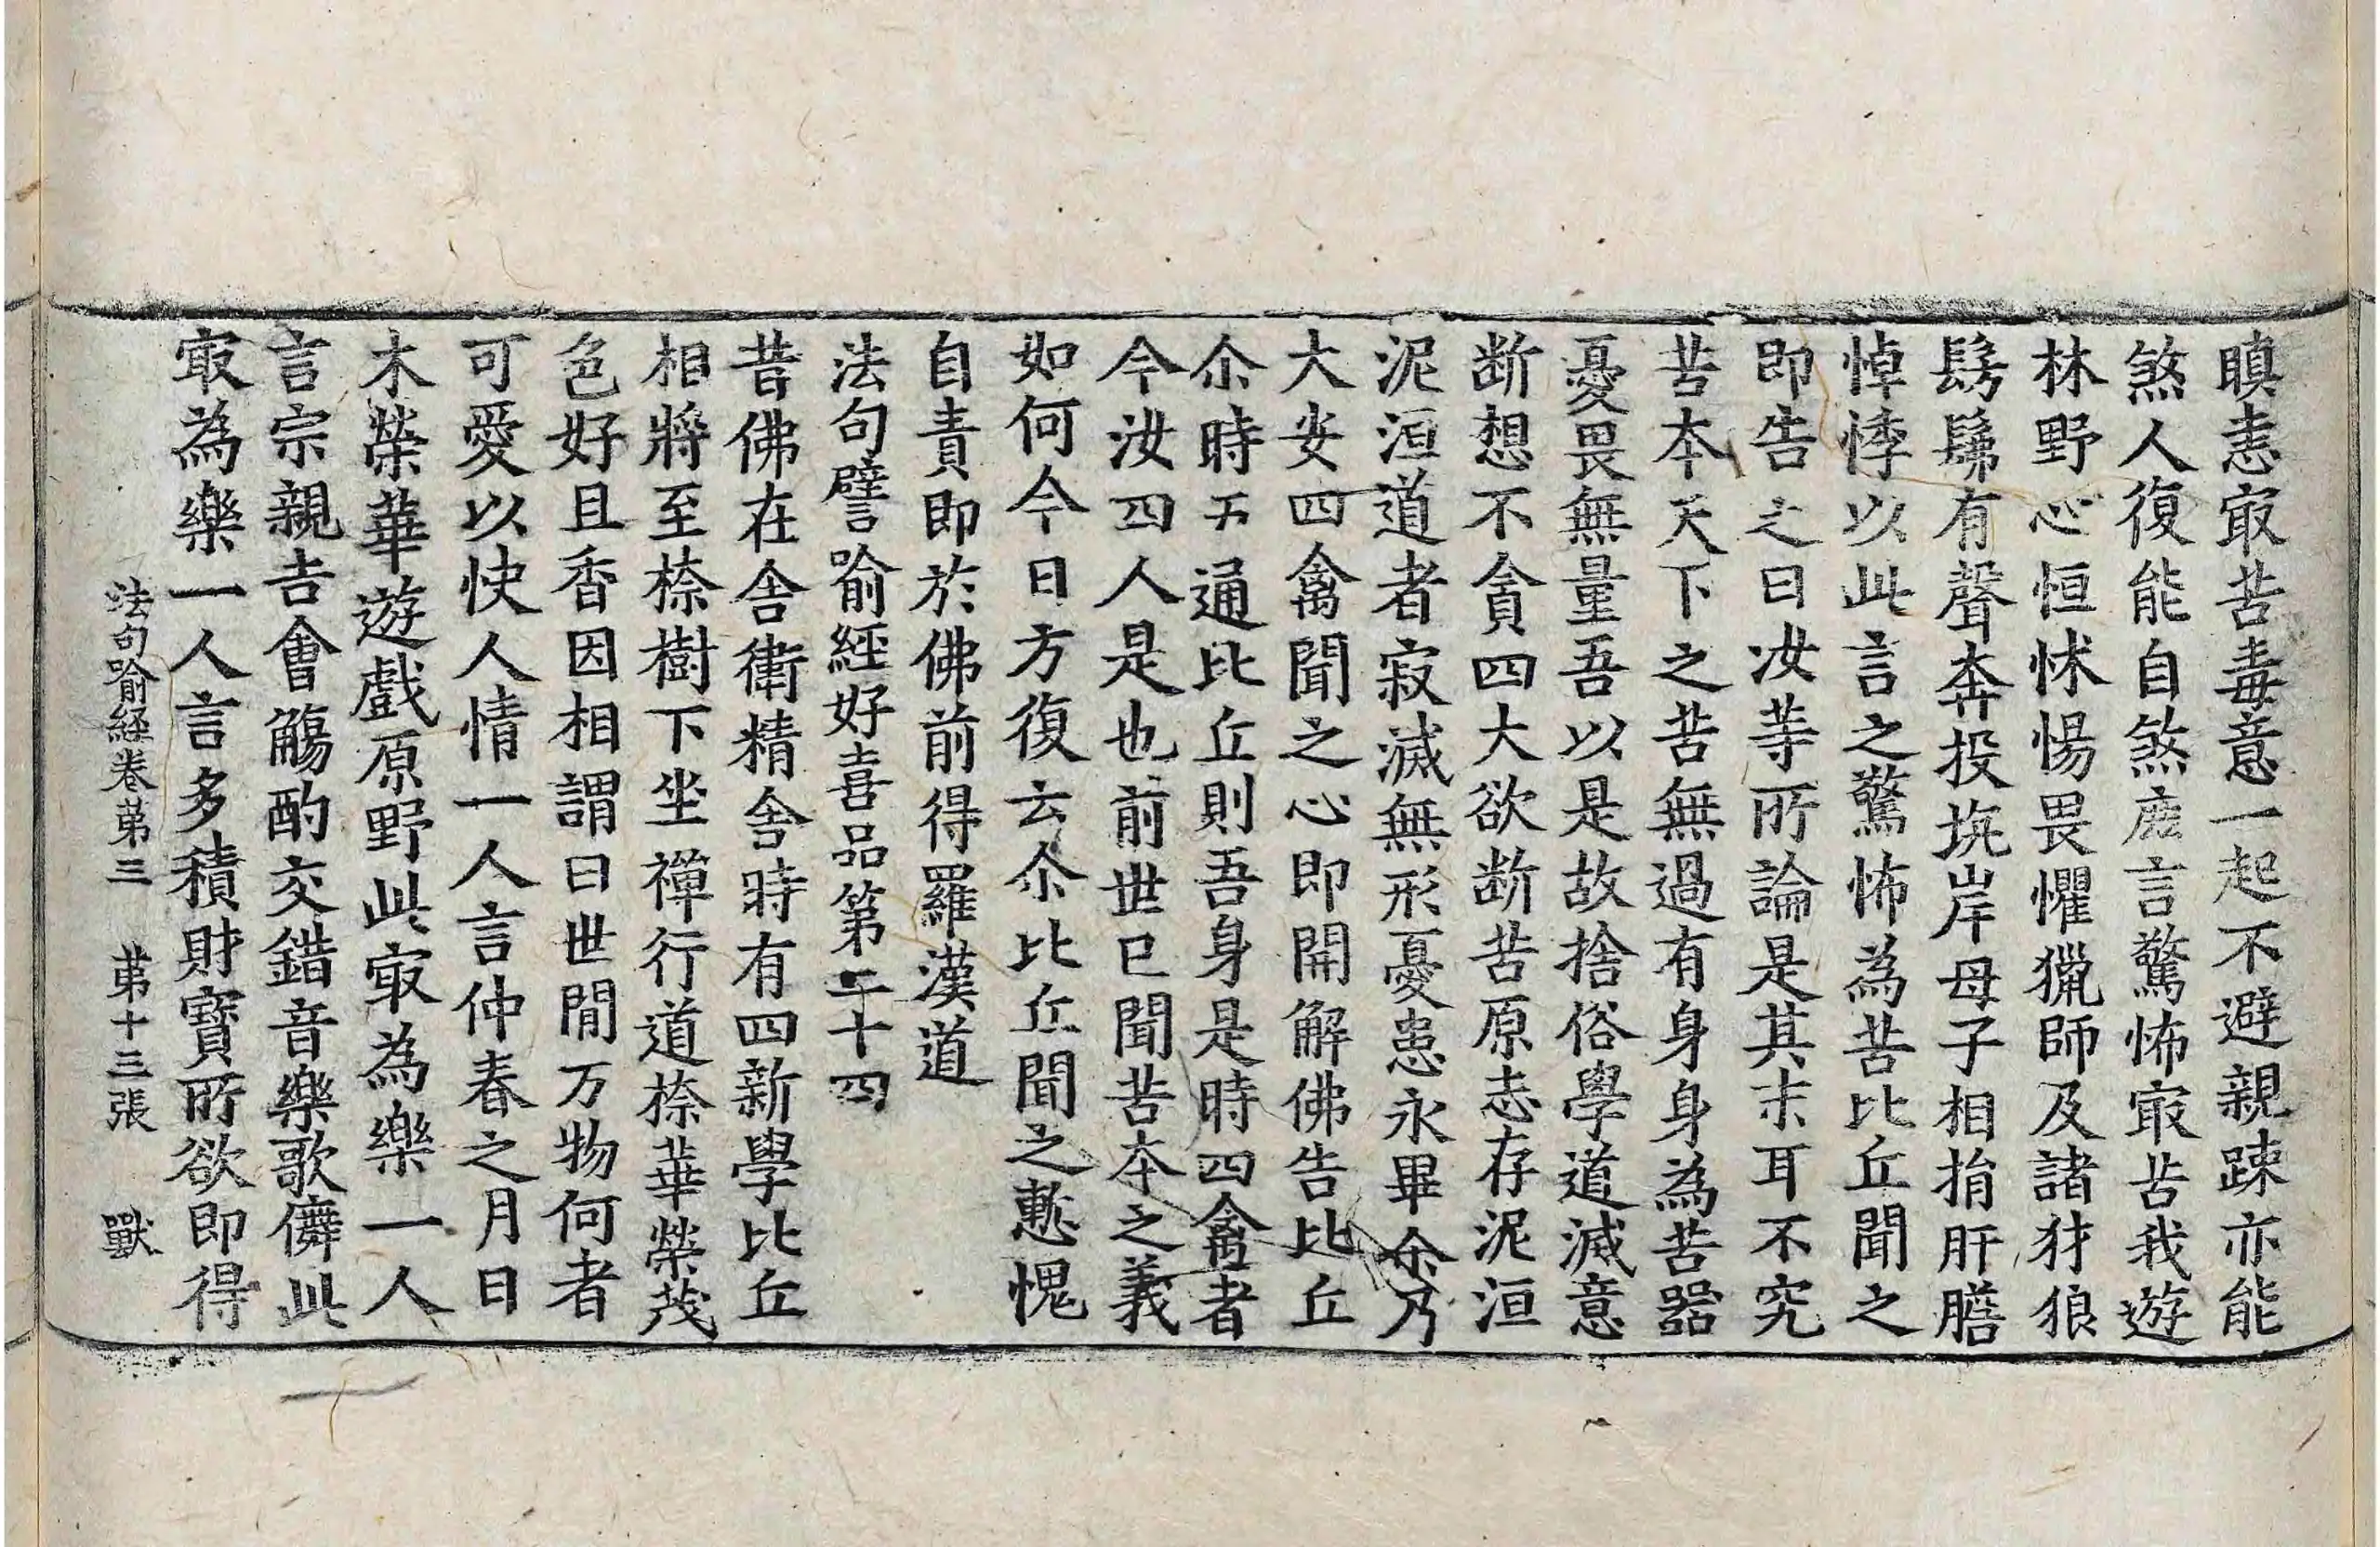 瞋恚㝡苦毒意一起不避親踈亦能
煞人復能自煞鹿言驚怖㝡苦我遊
林野心恒怵惕畏懼獵師及諸犲狼
髣髴有聲奔投坑岸母子相捐肝膽
悼悸以此言之驚怖為苦比丘聞之
即告之曰汝䓁所論是其末耳不究
苦夲天下之苦無過有身身為苦器
憂畏無量吾以是故捨俗學道滅意
断想不貪四大欲断苦原志存泥洹
泥洹道者寂滅無形憂患永畢尒乃
大安四禽聞之心即開解佛告比丘
尒時五通比丘則吾身是時四禽者
今汝四人是也前世已聞苦夲之義
如何今日方復云尒比丘聞之慙愧
自責即於佛前得羅漢道
法句譬喻經好喜品第二十四
昔佛在舎衛精舎時有四新學比丘
相將至㮈樹下坐禪行道㮈華榮茂
色好且香因相謂曰世間万物何者
可愛以快人情一人言仲春之月日
木榮華遊戲原野此㝡為樂一人
言宗親吉會觴酌交錯音樂歌儛此
㝡為樂一人言多積財寶所欲即得
法句喻經卷苐三 苐十三張 獸